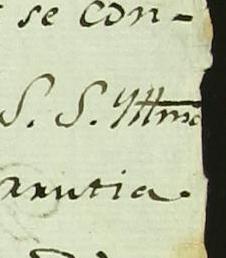 se con-
S. S. Illma
anutia.